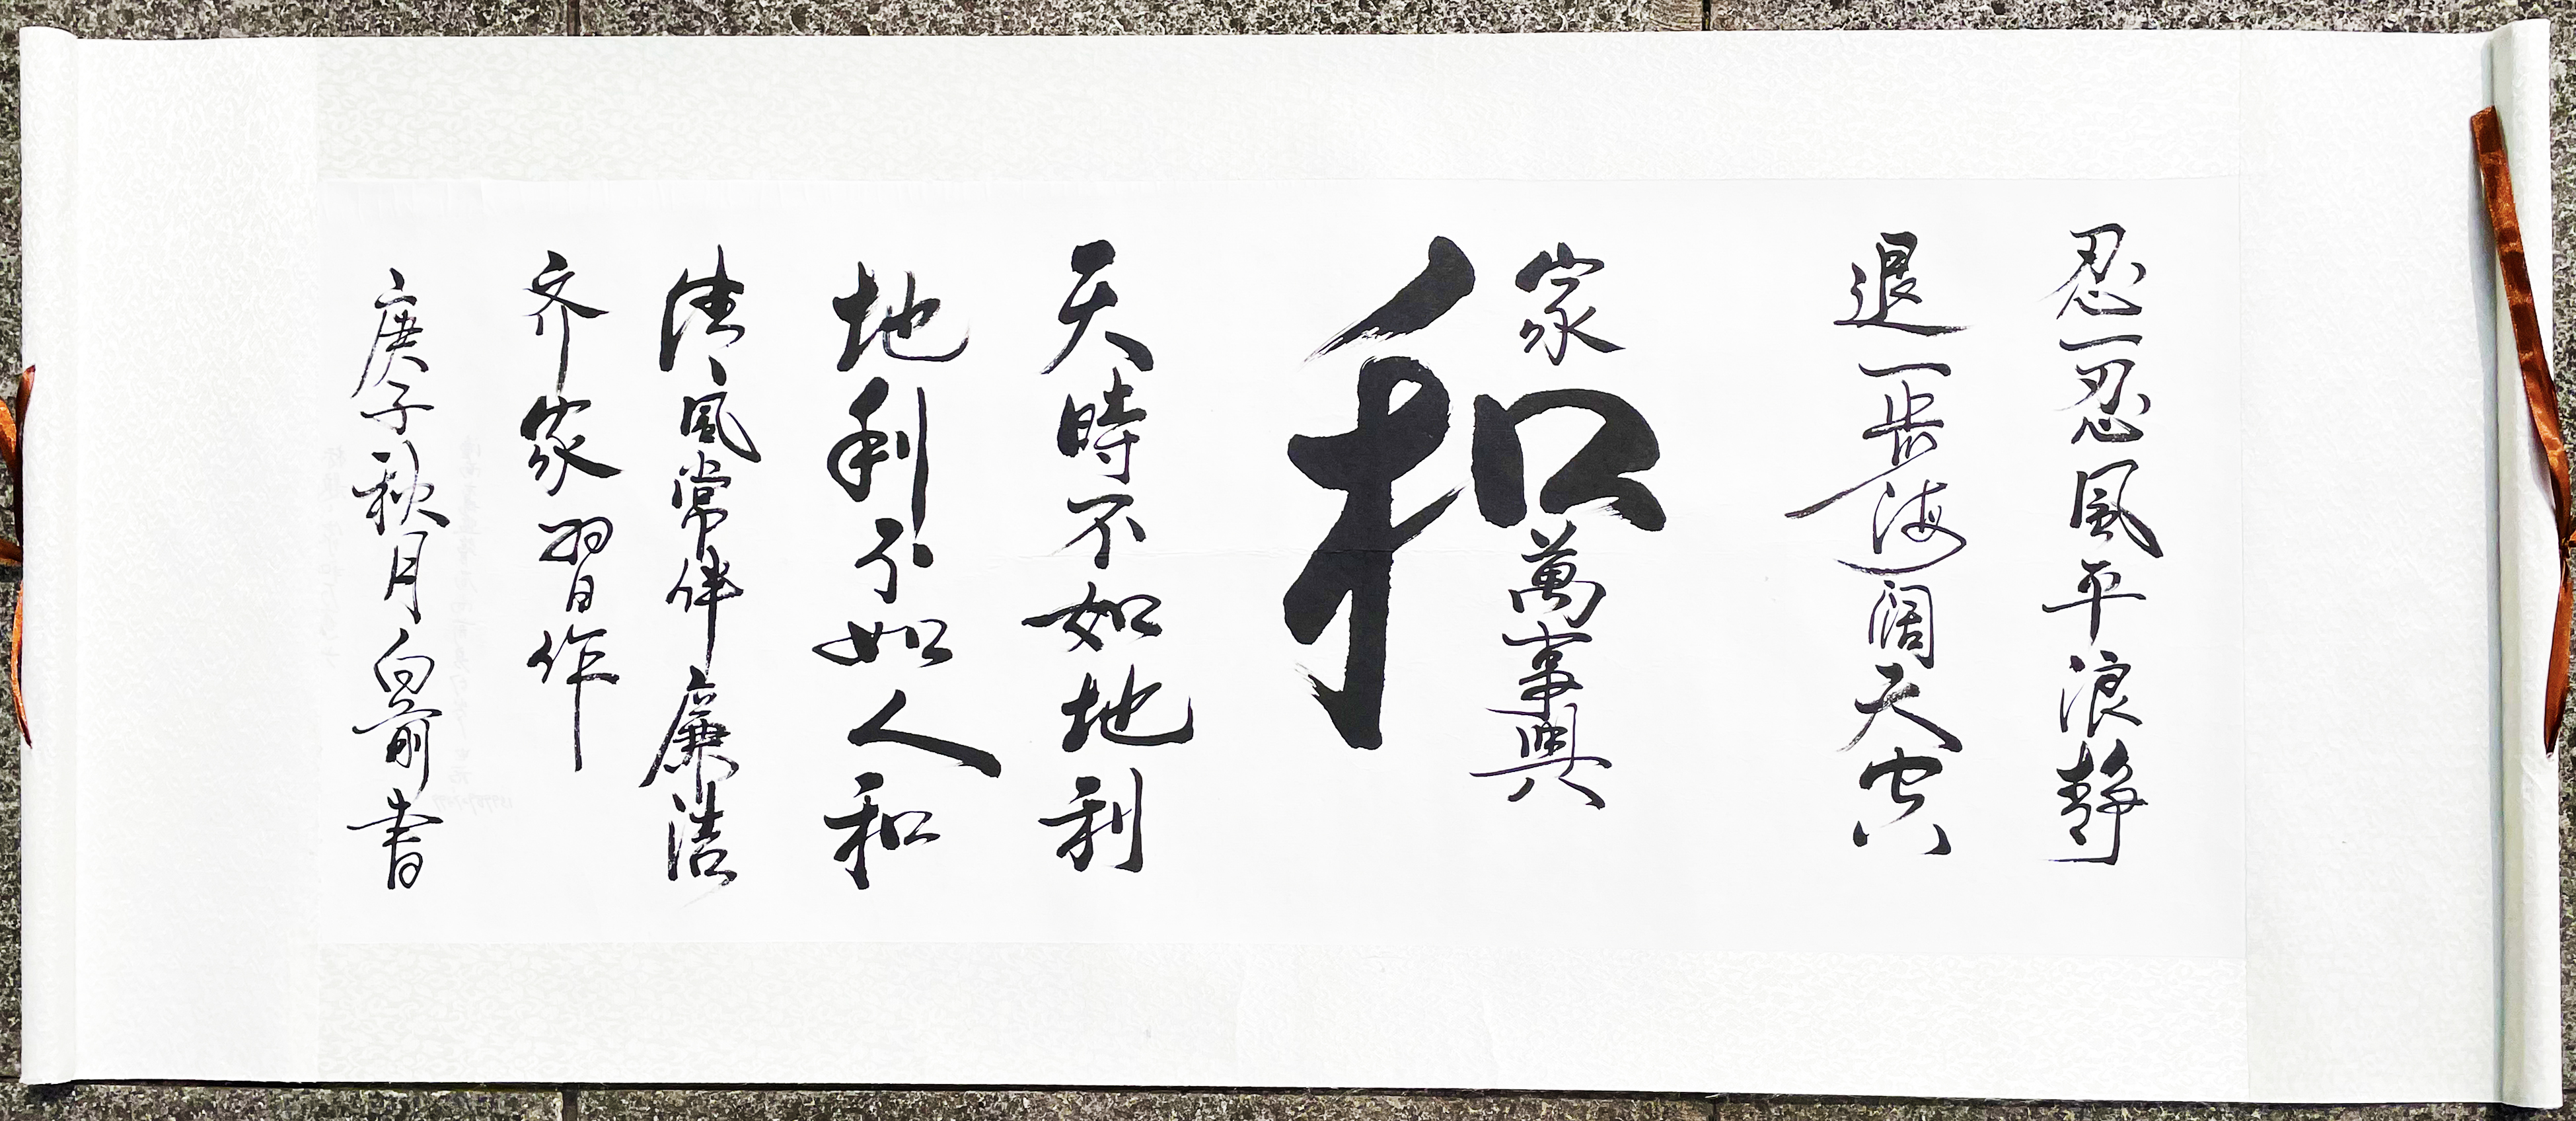 忍一忍風平浪静
退一步海阔天空
家和萬事興
天時不如地利
地利不如人和
清風常伴廉潔
齐家習作
庚子秋月向前書